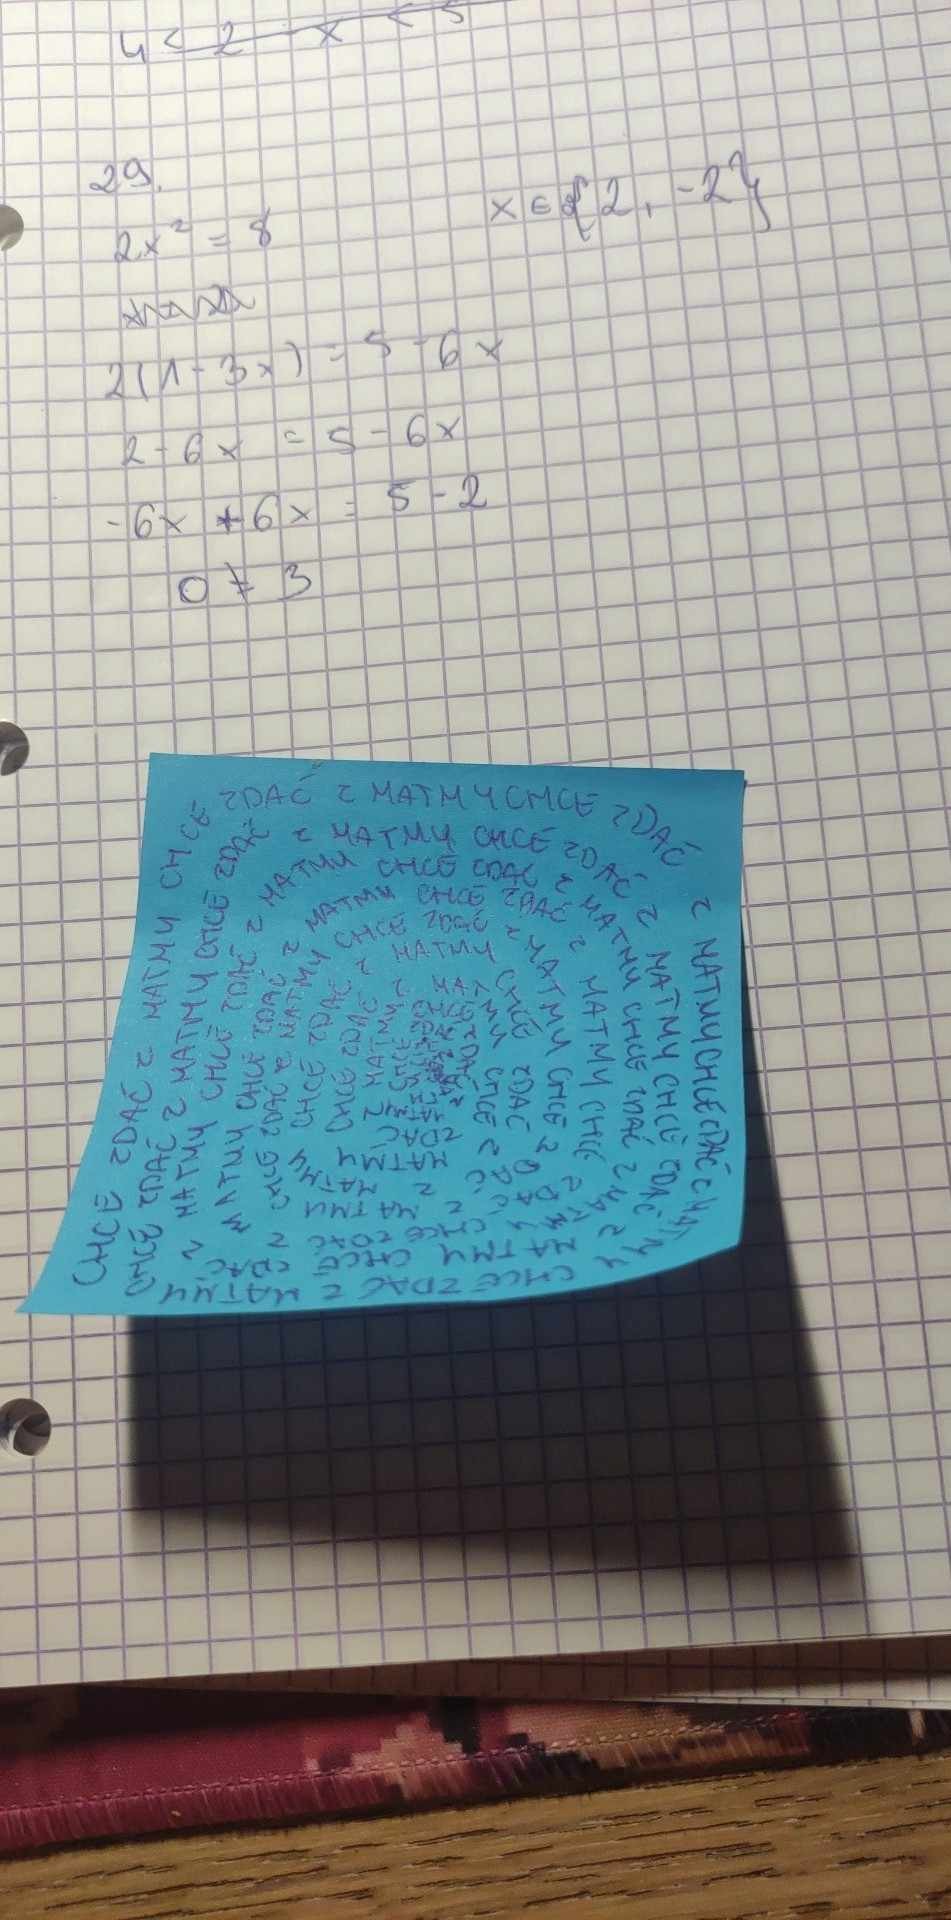 4 < 2 - x < 5
29.
2x² = 8
x ∈ {2, -2}
2(1 - 3x) = 5 - 6x
2 - 6x = 5 - 6x
-6x + 6x = 5 - 2
0 ≠ 3
CHCĘ ZDAĆ Z MATMY CHCĘ ZDAĆ Z MATMY CHCĘ ZDAĆ Z MATMY CHCĘ ZDAĆ Z MATMY CHCĘ ZDAĆ Z MATMY
CHCĘ ZDAĆ Z MATMY CHCĘ ZDAĆ Z MATMY CHCĘ ZDAĆ Z MATMY CHCĘ ZDAĆ Z MATMY CHCĘ ZDAĆ
Z MATMY CHCĘ ZDAĆ Z MATMY CHCĘ ZDAĆ Z MATMY CHCĘ ZDAĆ Z MATMY CHCĘ ZDAĆ
Z MATMY CHCĘ ZDAĆ Z MATMY CHCĘ ZDAĆ Z MATMY CHCĘ ZDAĆ Z MATMY
CHCĘ ZDAĆ Z MATMY CHCĘ ZDAĆ Z MATMY CHCĘ ZDAĆ Z MATMY
CHCĘ ZDAĆ Z MATMY CHCĘ ZDAĆ Z MATMY
CHCĘ ZDAĆ Z MATMY CHCĘ ZDAĆ